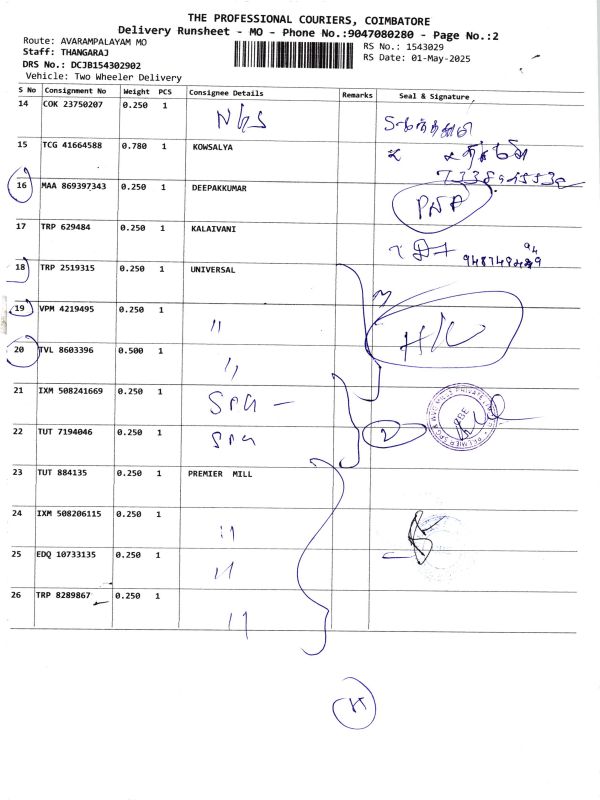 THE PROFESSIONAL COURIERS, COIMBATORE
Delivery Runsheet - MO - Phone No.:9047080280 - Page No.:2
Route: AVARAMPALAYAM MO
RS No.: 1543029
Staff: THANGARAJ
RS Date: 01-May-2025
DRS No.: DCJB154302902
Vehicle: Two Wheeler Delivery
S No Consignment No Weight PCS Consignee Details Remarks Seal & Signature
14 COK 23750207 0.250 1
15 TCG 41664588 0.780 1 KOWSALYA
16 MAA 869397343 0.250 1 DEEPAKKUMAR
17 TRP 629484 0.250 1 KALAIVANI
18 TRP 2519315 0.250 1 UNIVERSAL
19 VPM 4219495 0.250 1 "
20 TVL 8603396 0.500 1 "
21 IXM 508241669 0.250 1 SPG -
22 TUT 7194046 0.250 1 SPG 2
23 TUT 884135 0.250 1 PREMIER MILL
24 IXM 508206115 0.250 1 "
25 EDQ 10733135 0.250 1 "
26 TRP 8289867 0.250 1 "